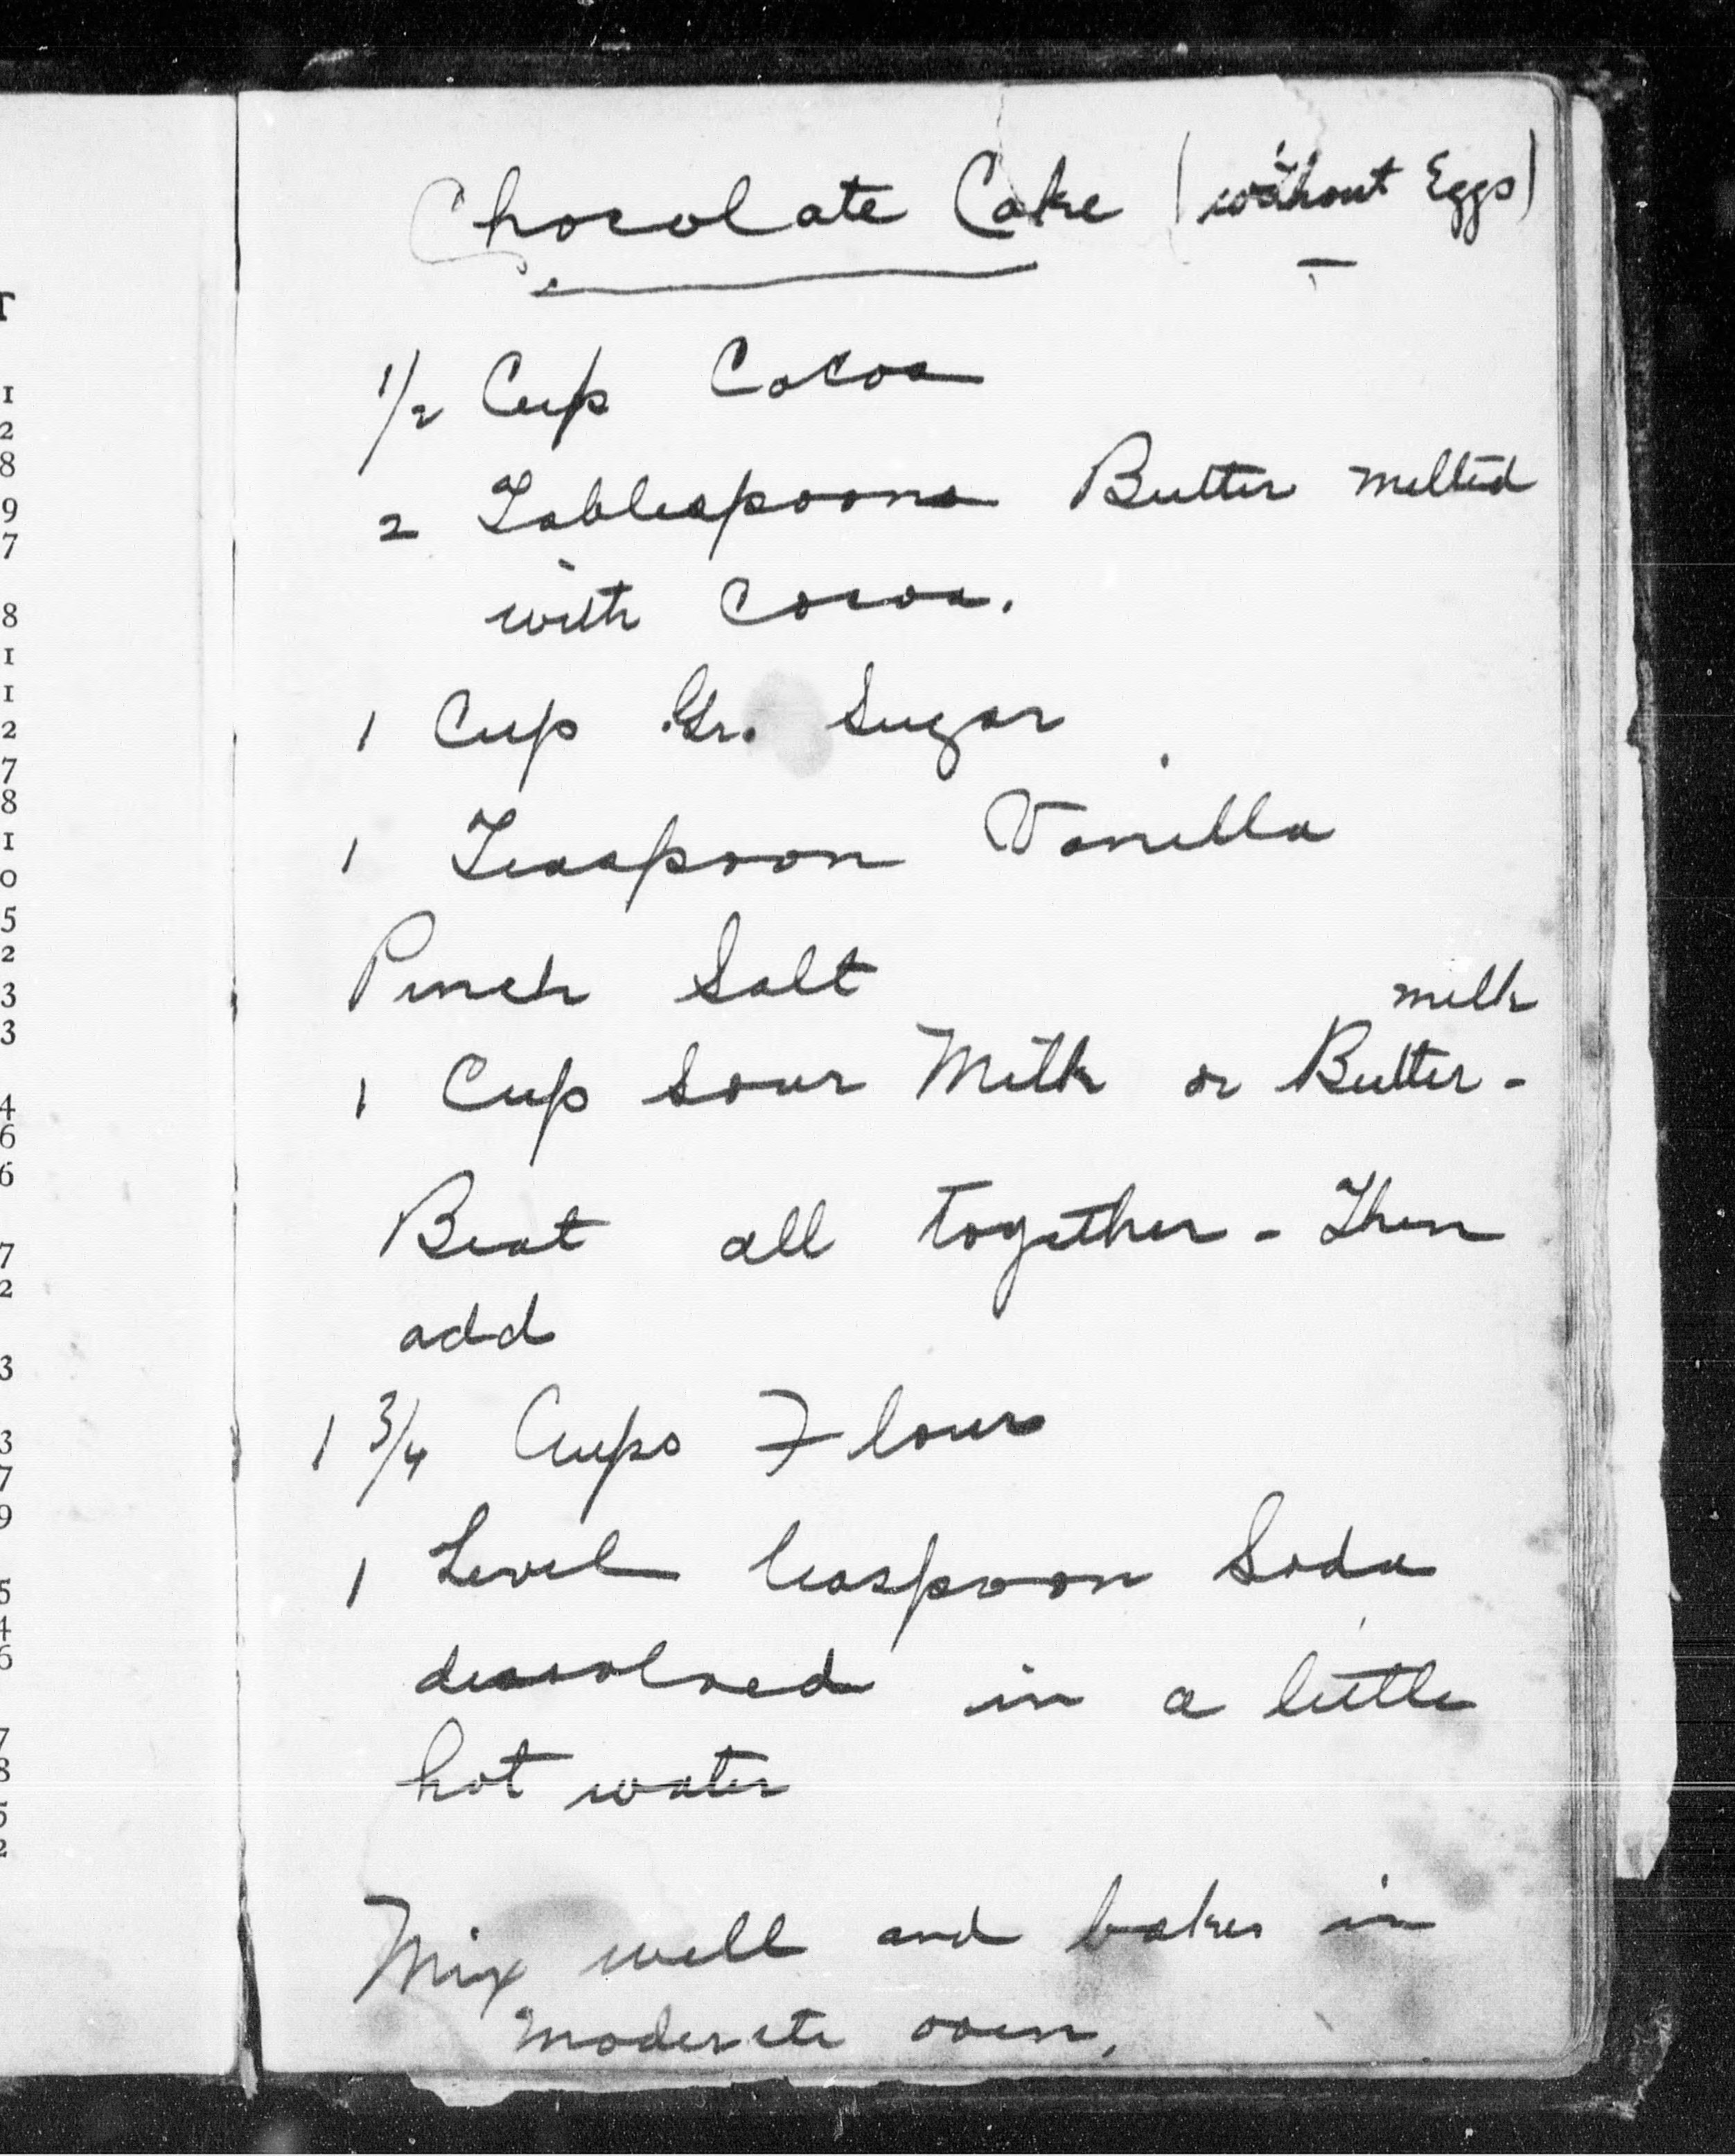 Chocolate Cake (without Eggs)
1/2 Cup Cocoa
2 Tablespoons Butter melted
with Cocoa.
1 Cup Gr. Sugar
1 Teaspoon Vanilla
Pinch Salt
milk
1 Cup Sour Milk or Butter-
Beat all together - Then
add
1 3/4 Cups Flour
1 Level teaspoon Soda
dissolved in a little
hot water
Mix well and bake in
moderate oven.
T
1
2
8
9
7
8
1
1
2
7
8
1
0
5
2
3
3
4
6
6
7
2
3
3
7
9
5
4
6
7
8
5
2